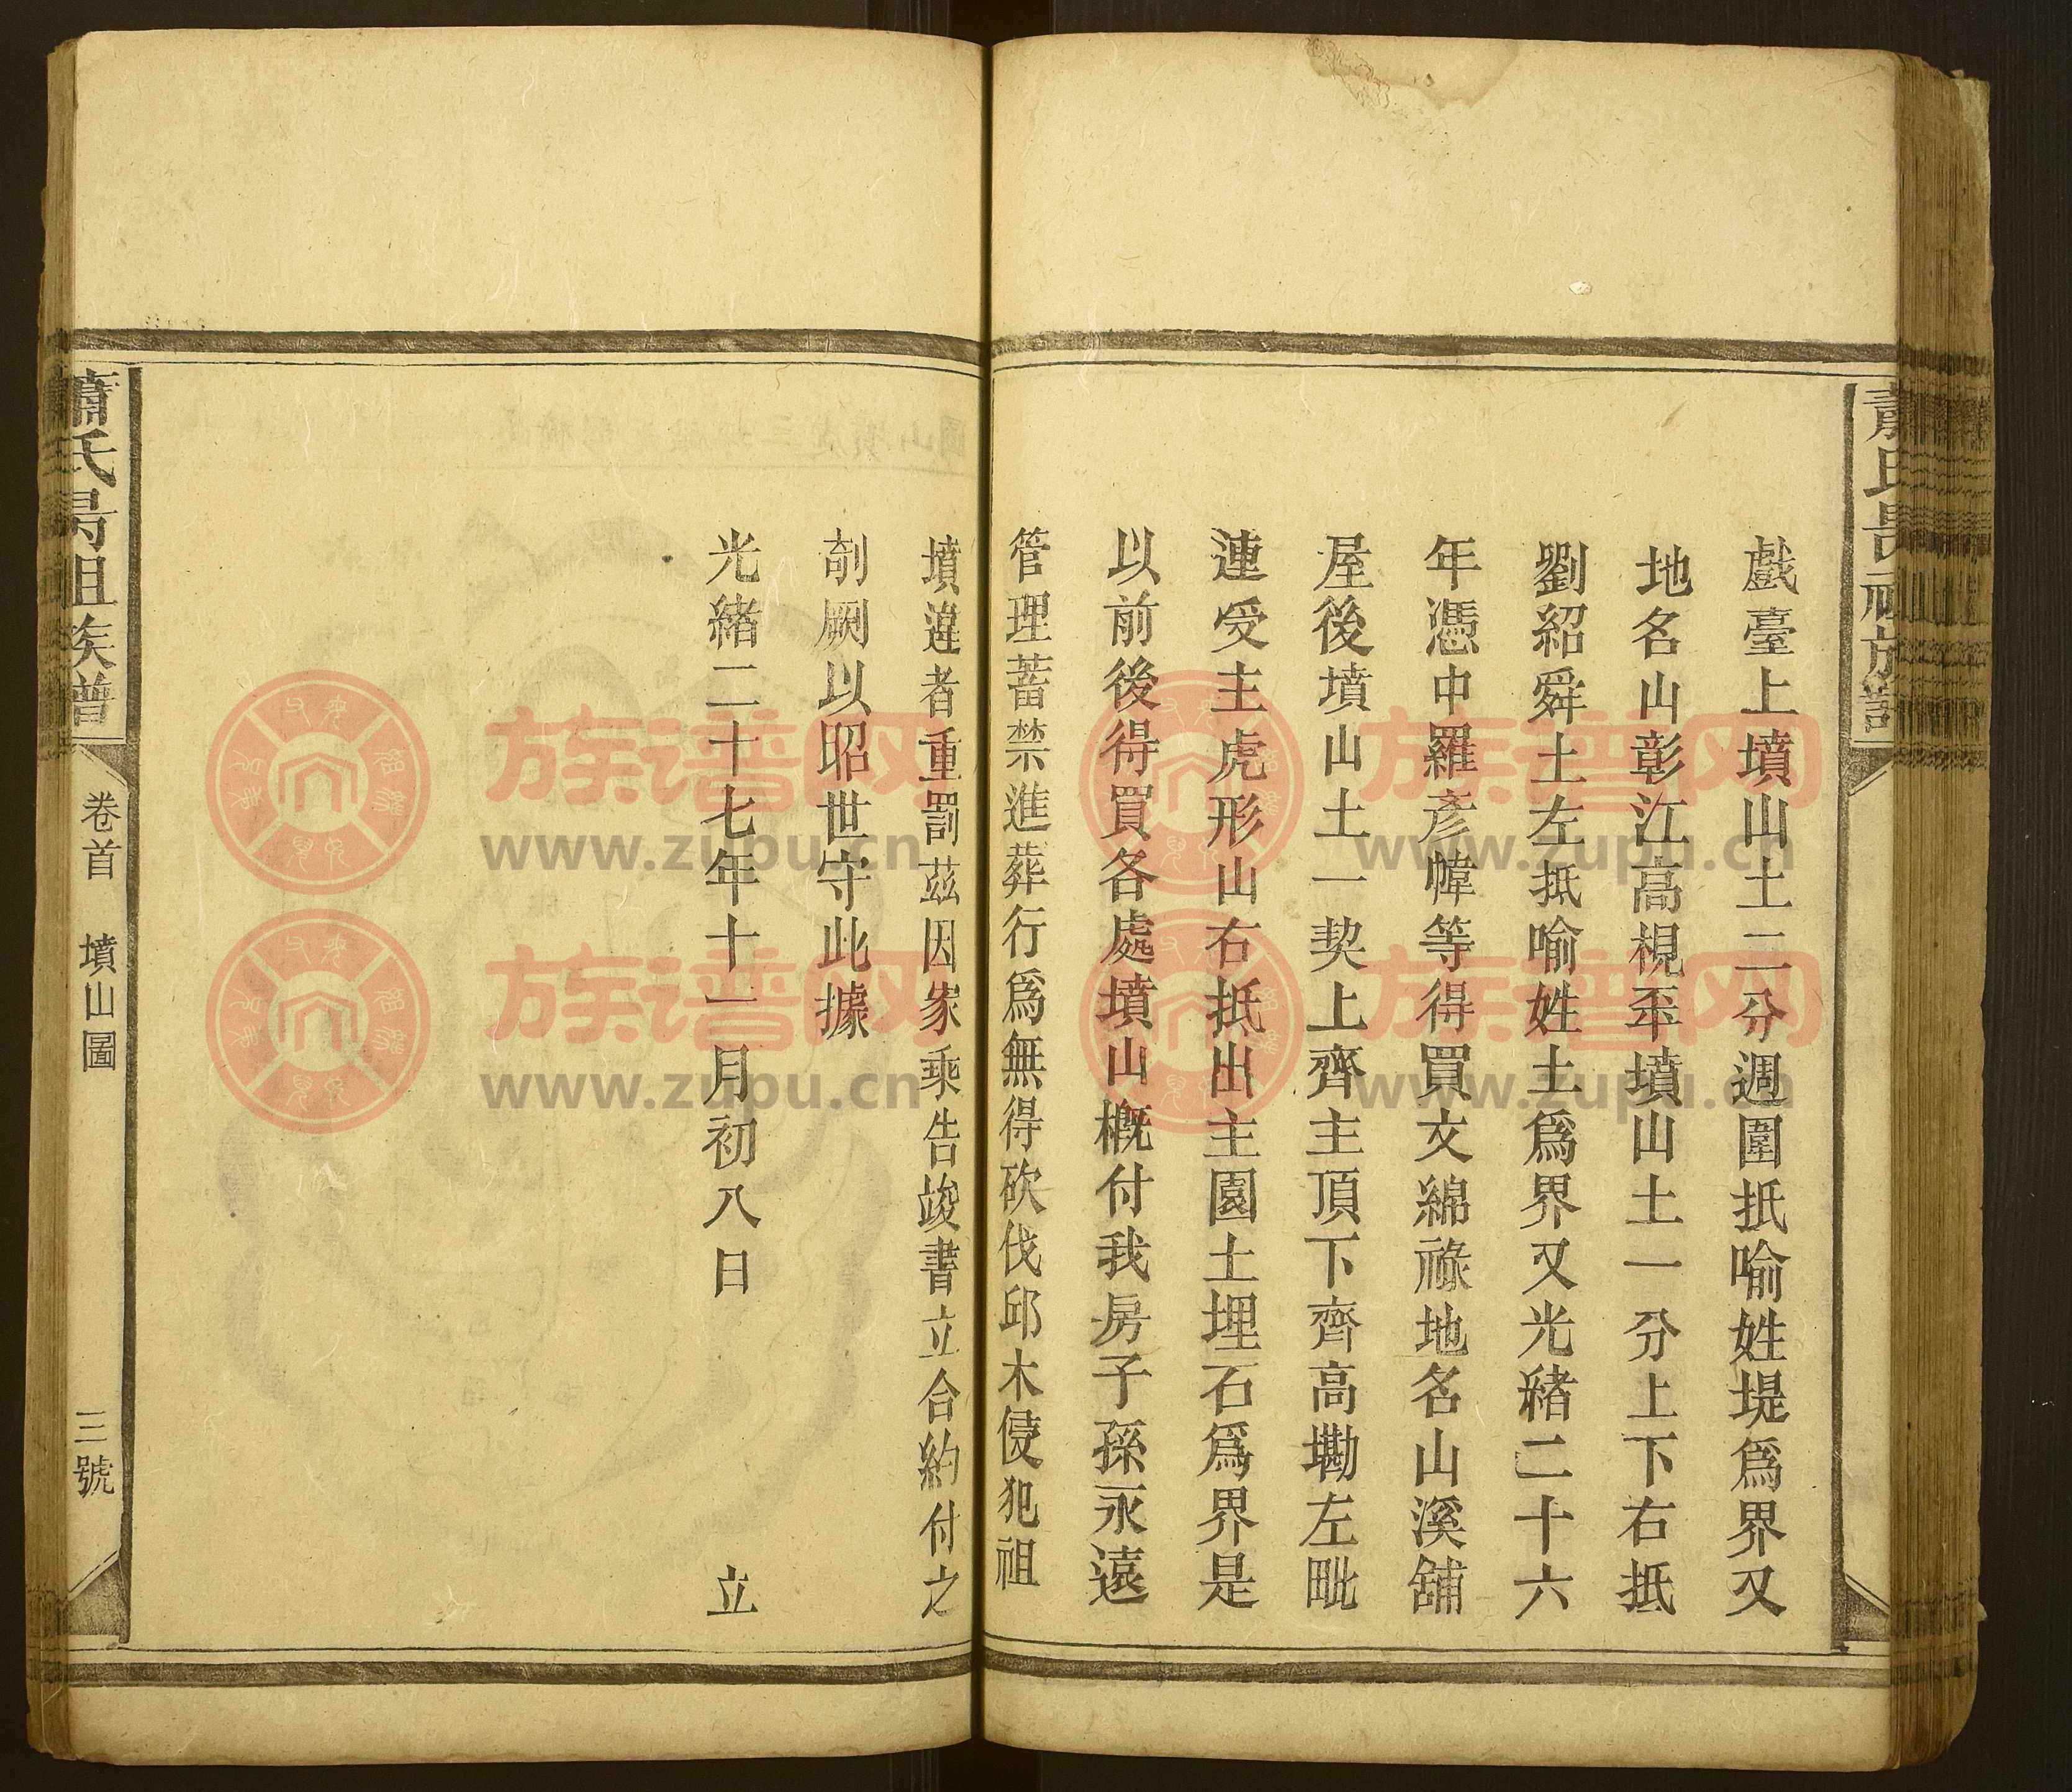 戲臺上墳山土二分週圍抵喻姓堤爲界又
地名山彰江高梘坪墳山土一分上下右抵
劉紹舜土左抵喻姓土爲界又光緒二十六
年憑中羅彥幃等得買文綿祿地名山溪舖
屋後墳山土一契上齊主頂下齊高墈左毗
連受主虎形山右抵出主園土埋石爲界是
以前後得買各處墳山概付我房子孫永遠
管理蓄禁進葬行爲無得砍伐邱木侵犯祖
墳違者重罰茲因家乘告竣書立合約付之
剞劂以昭世守此據
光緒二十七年十一月初八日 立
蕭氏昺祖族譜 卷首 墳山圖 三號
族谱网
www.zupu.cn
族谱网
www.zupu.cn
族谱网
www.zupu.cn
族谱网
www.zupu.cn